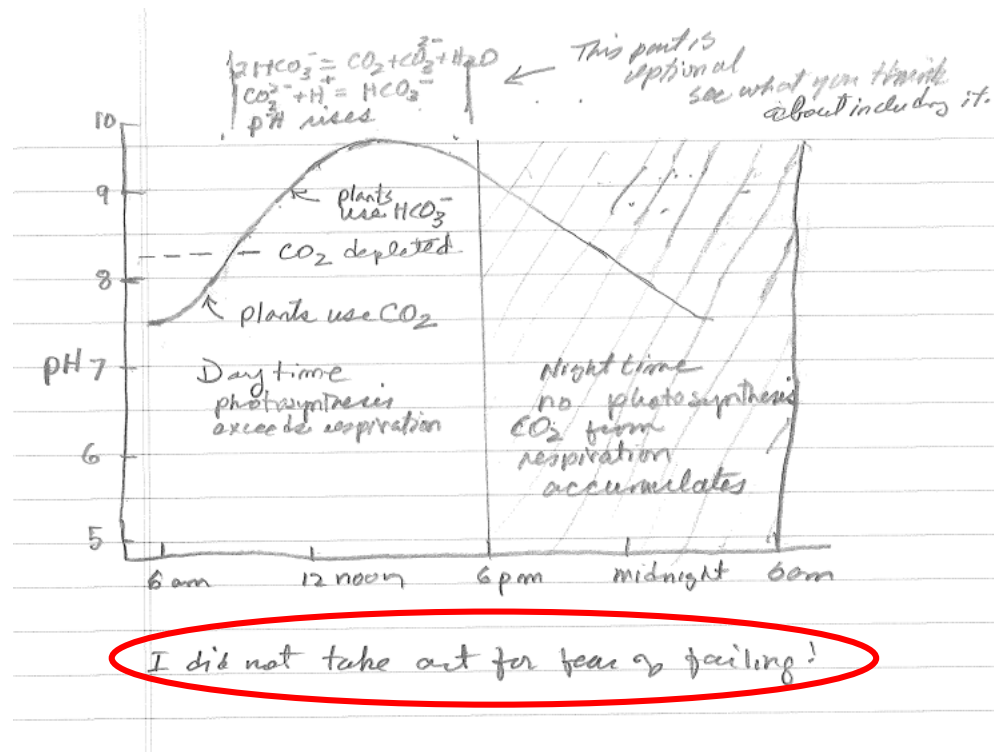 2HCO₃⁻ = CO₂ + CO₃²⁻ + H₂O
CO₃²⁻ + H⁺ = HCO₃⁻
pH rises
This part is
optional
see what you think
about including it.
10
9
plants
use HCO₃⁻
CO₂ depleted
8
plants use CO₂
pH 7
Daytime
photosynthesis
exceeds respiration
Night time
no photosynthesis
CO₂ from
respiration
accumulates
6
5
6 am
12 noon
6 pm
midnight
6 am
I did not take art for fear of failing!